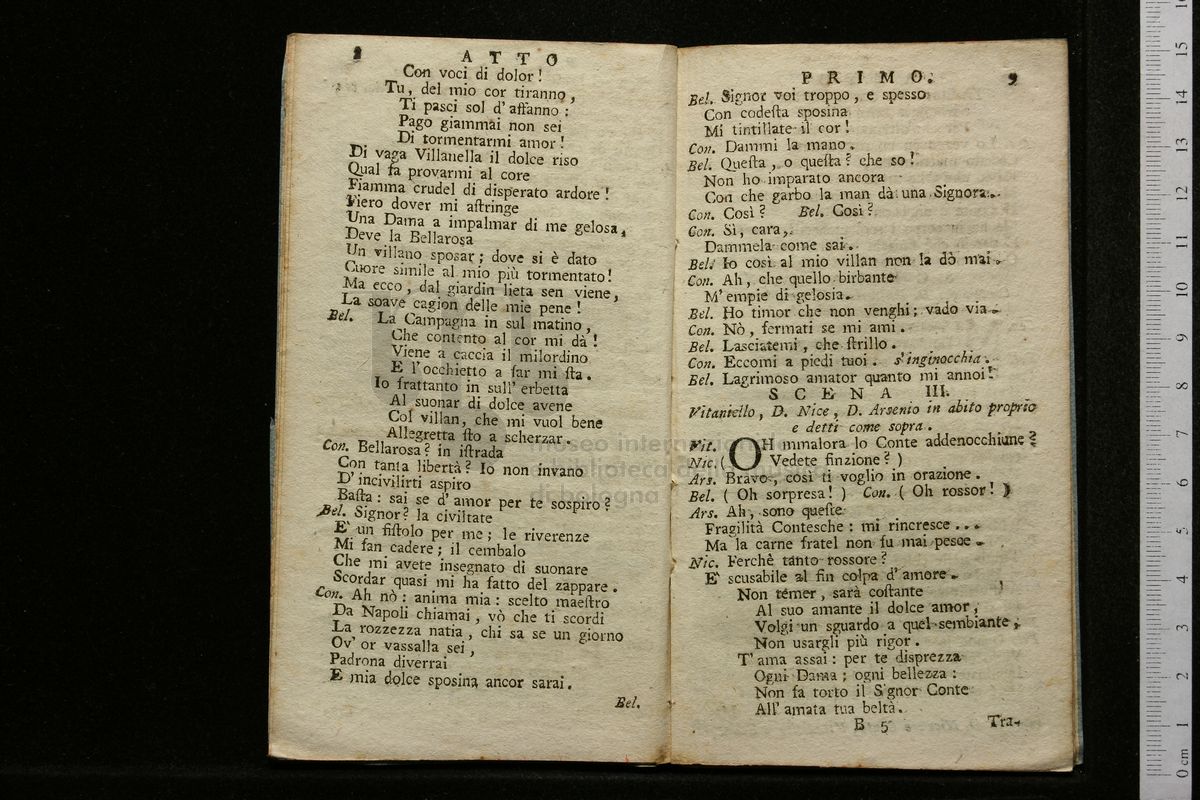 8 ATTO
Con voci di dolor!
Tu, del mio cor tiranno,
Ti pasci sol d'affanno:
Pago giammai non sei
Di tormentarmi amor!
Di vaga Villanella il dolce riso
Qual fa provarmi al core
Fiamma crudel di disperato ardore!
Fiero dover mi aſtringe
Una Dama a impalmar di me gelosa,
Deve la Bellarosa
Un villano sposar; dove si è dato
Cuore simile al mio più tormentato!
Ma ecco, dal giardin lieta sen viene,
La soave cagion delle mie pene!
Bel. La Campagna in sul matino,
Che contento al cor mi dà!
Viene a caccia il milordino
E l'occhietto a far mi ſta.
Io frattanto in sull' erbetta
Al suonar di dolce avene
Col villan, che mi vuol bene
Allegretta ſto a scherzar.
Con. Bellarosa? in iſtrada
Con tanta libertà? Io non invano
D'incivilirti aspiro
Baſta: sai se d'amor per te sospiro?
Bel. Signor? la civiltate
E' un fiſtolo per me; le riverenze
Mi fan cadere; il cembalo
Che mi avete insegnato di suonare
Scordar quasi mi ha fatto del zappare.
Con. Ah nò: anima mia: scelto maeſtro
Da Napoli chiamai, vò che ti scordi
La rozzezza natia, chi sa se un giorno
Ov' or vassalla sei,
Padrona diverrai
E mia dolce sposina ancor sarai.
Bel.
PRIMO. 9
Bel. Signor voi troppo, e spesso
Con codeſta sposina
Mi tintillate il cor!
Con. Dammi la mano.
Bel. Queſta, o queſta? che so!
Non ho imparato ancora
Con che garbo la man dà una Signora.
Con. Così? Bel. Così?
Con. Sì, cara,
Dammela come sai.
Bel. Io così al mio villan non la dò mai.
Con. Ah, che quello birbante
M'empie di gelosia.
Bel. Ho timor che non venghi; vado via.
Con. Nò, fermati se mi ami.
Bel. Lasciatemi, che ſtrillo.
Con. Eccomi a piedi tuoi. s'inginocchia.
Bel. Lagrimoso amator quanto mi annoi!
SCENA III.
Vitaniello, D. Nice, D. Arsenio in abito proprio
e detti come sopra.
Vit. OH mmalora lo Conte addenocchiune?
Nic. ( Vedete finzione? )
Ars. Bravo, così ti voglio in orazione.
Bel. ( Oh sorpresa! ) Con. ( Oh rossor! )
Ars. Ah, sono queſte
Fragilità Contesche: mi rincresce...
Ma la carne fratel non fu mai pesce.
Nic. Perchè tanto rossore?
E' scusabile al fin colpa d'amore.
Non temer, sarà coſtante
Al suo amante il dolce amor,
Volgi un sguardo a quel sembiante,
Non usargli più rigor.
T'ama assai: per te disprezza
Ogni Dama; ogni bellezza:
Non fa torto il Signor Conte
All' amata tua beltà.
B 5 Tra-
museo internazionale
e biblioteca della musica
di bologna
0 cm 1 2 3 4 5 6 7 8 9 10 11 12 13 14 15 16